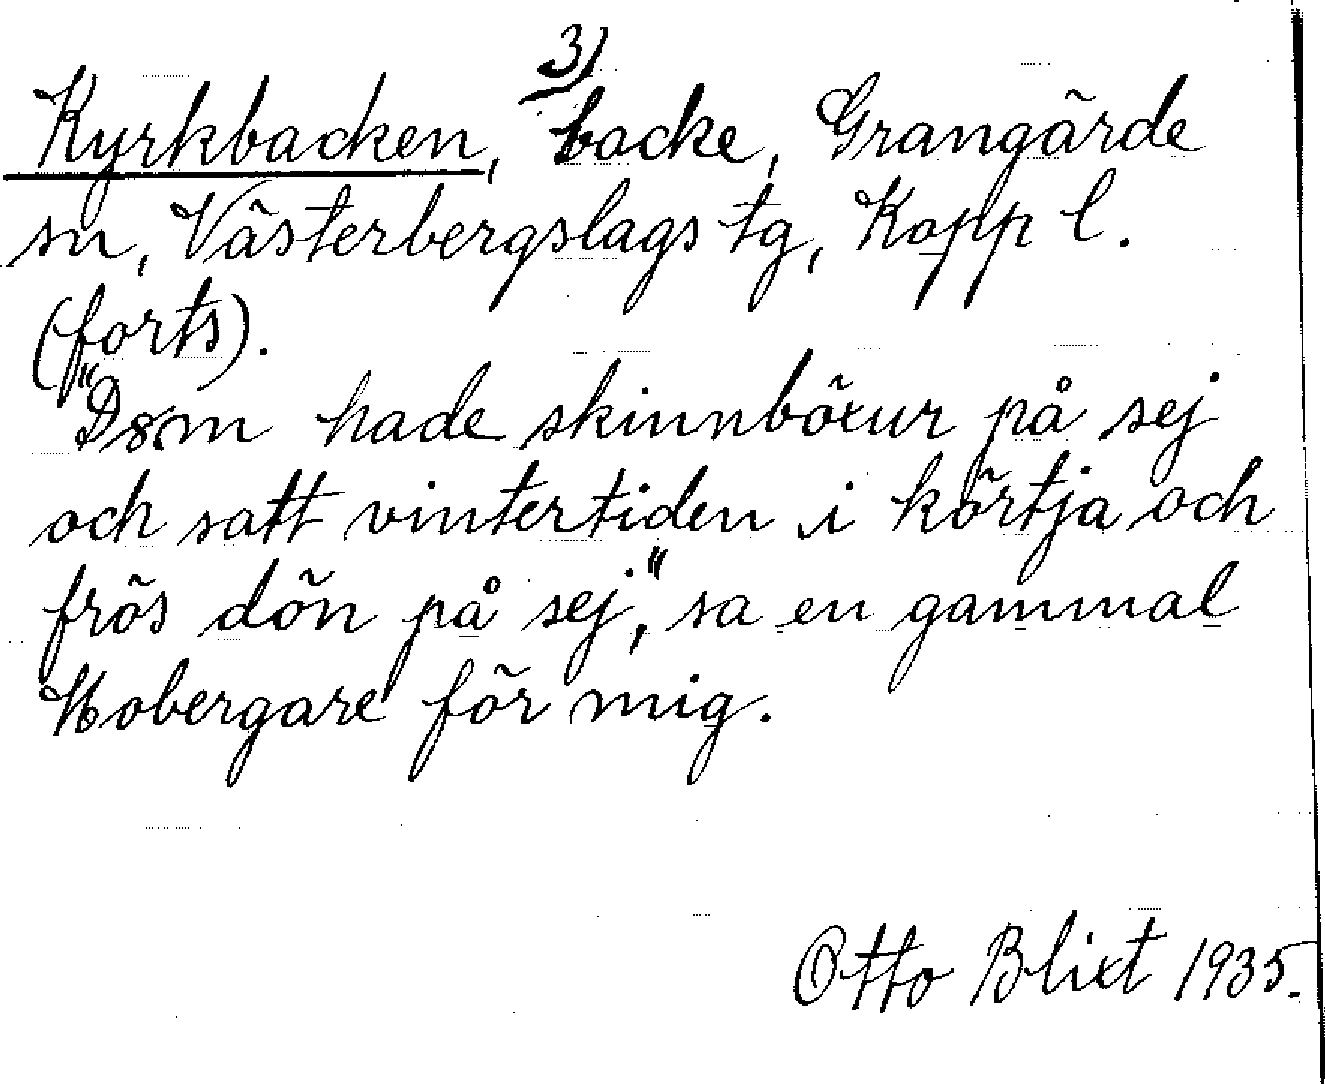 3)
Kyrkbacken, backe, Grangärde
sn, Västerbergslags tg, Kopp l.
(forts).
"Dom hade skinnböxur på sej
och satt vintertiden i körtja och
frös dön på sej," sa en gammal
Hobergare för mig.
Otto Blixt 1935.